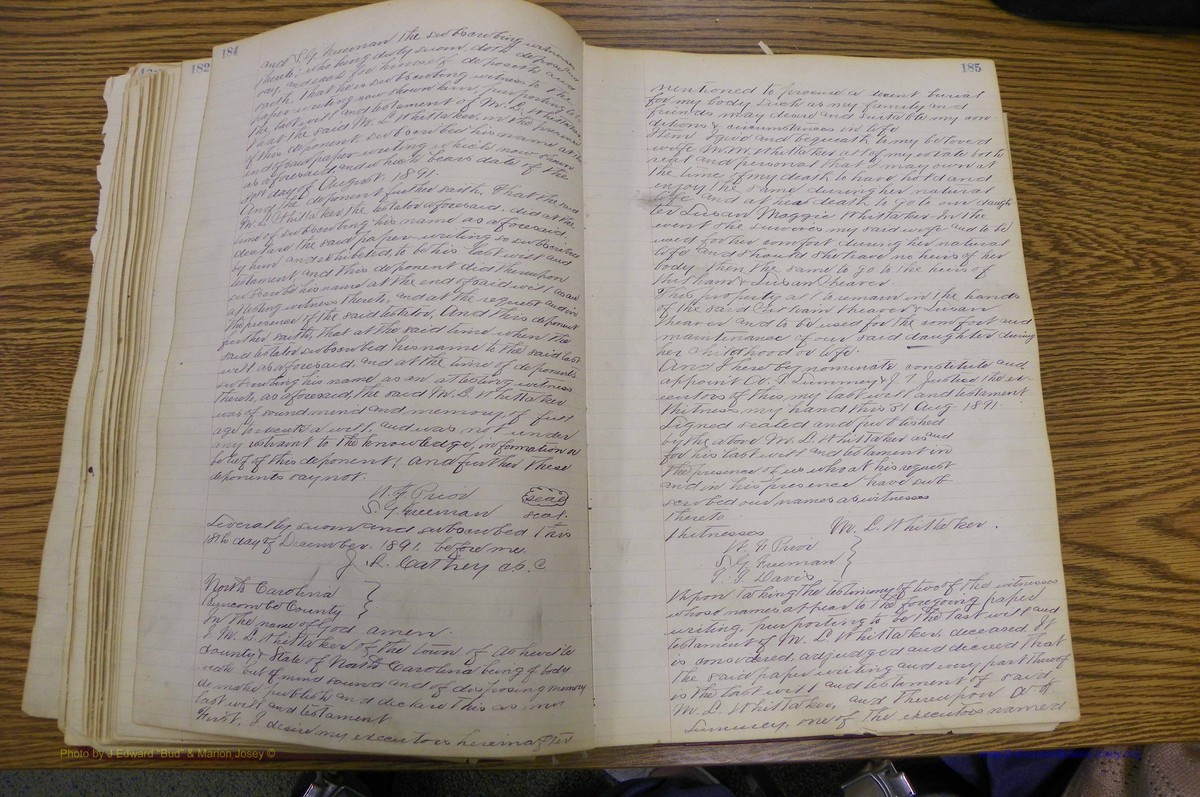 182
184
and S. G. Freeman the subscribing witnesses
thereto, who being duly sworn, doth depose and
say, and each for himself deposeth and
saith, that he is a subscribing witness to the
paper writing now shown him, purporting to be
the last will and testament of M. L. Whittaker
that the said M. L. Whittaker, in the presence
of this deponent, subscribed his name at the
end of said paper writing which is now shown
as aforesaid, and which bears date of the
31st day of August, 1891.
And the deponent further saith, That the said
M. L. Whittaker the testator aforesaid, did at the
time of subscribing his name as aforesaid,
declare the said paper writing so subscribed
by him and exhibited, to be his last will and
testament, and this deponent did thereupon
subscribed his name at the end of said will as an
attesting witness thereto, and at the request and in
the presence of the said testator. And this deponent
further saith, that at the said time when the
said testator subscribed his name to the said last
will as aforesaid, and at the time of deponents
subscribing his name as an attesting witness
thereto, as aforesaid, the said M. L. Whittaker
was of sound mind and memory, of full
age to execute a will, and was not under
any restraint to the knowledge, information or
belief of this deponent; and further these
deponents say not.
W. F. Prior seal
S. G. Freeman seal.
Severally sworn and subscribed this
18th day of December, 1891, before me.
J. L. Cathey C.S.C
North Carolina }
Buncombe County }
In the name of God amen.
I, M. L. Whittaker of the town of Asheville
County & State of North Carolina being of body
weak but of mind sound and of disposing memory
do make publish and declare this as my
last will and testament
First, I desire my executors hereinafter
185
mentioned to provide a decent burial
for my body such as my family and
friends may desire and suitable my con
ditions & circumstances in life
Item I give and bequeath to my beloved
wife M. M. Whittaker all of my estate both
real and personal that I may own at
the time of my death to have hold and
enjoy the same during her natural
life and at her death to go to our daugh
ter Susan Maggie Whittaker in the
event she survives my said wife and to be
used for her comfort during her natural
life and should she have no heirs of her
body then the same to go to the heirs of
Chitham & Susan Sheaver
This property all to remain in the hands
of the said Chitham Sheaver & Susan
Sheaver and to be used for the comfort and
maintenance of our said daughter during
her childhood or life.
And I hereby nominate constitute and
appoint A. T. Summey & J. T. Justice the ex-
ecutors of this, my last will and testament
Witness my hand this 31 Aug. 1891.
Signed sealed and published
by the above M. L. Whittaker as and
for his last will and testament in
the presence of us who at his request
and in his presence have sub
scribed our names as witnesses
thereto
Witnesses M. L. Whittaker.
W. F. Prior }
S. G. Freeman }
Davis }
Upon taking the testimony of two of the witnesses
whose names appear to the foregoing paper
writing, purporting to be the last will and
testament of M. L. Whittaker, deceased, It
is considered, adjudged and decreed that
the said paper writing and every part thereof
is the last will and testament of said,
M. L. Whittaker, and thereupon A. T.
Summey, one of the executors named
Photo by J Edward "Bud" & Marion Josey ©